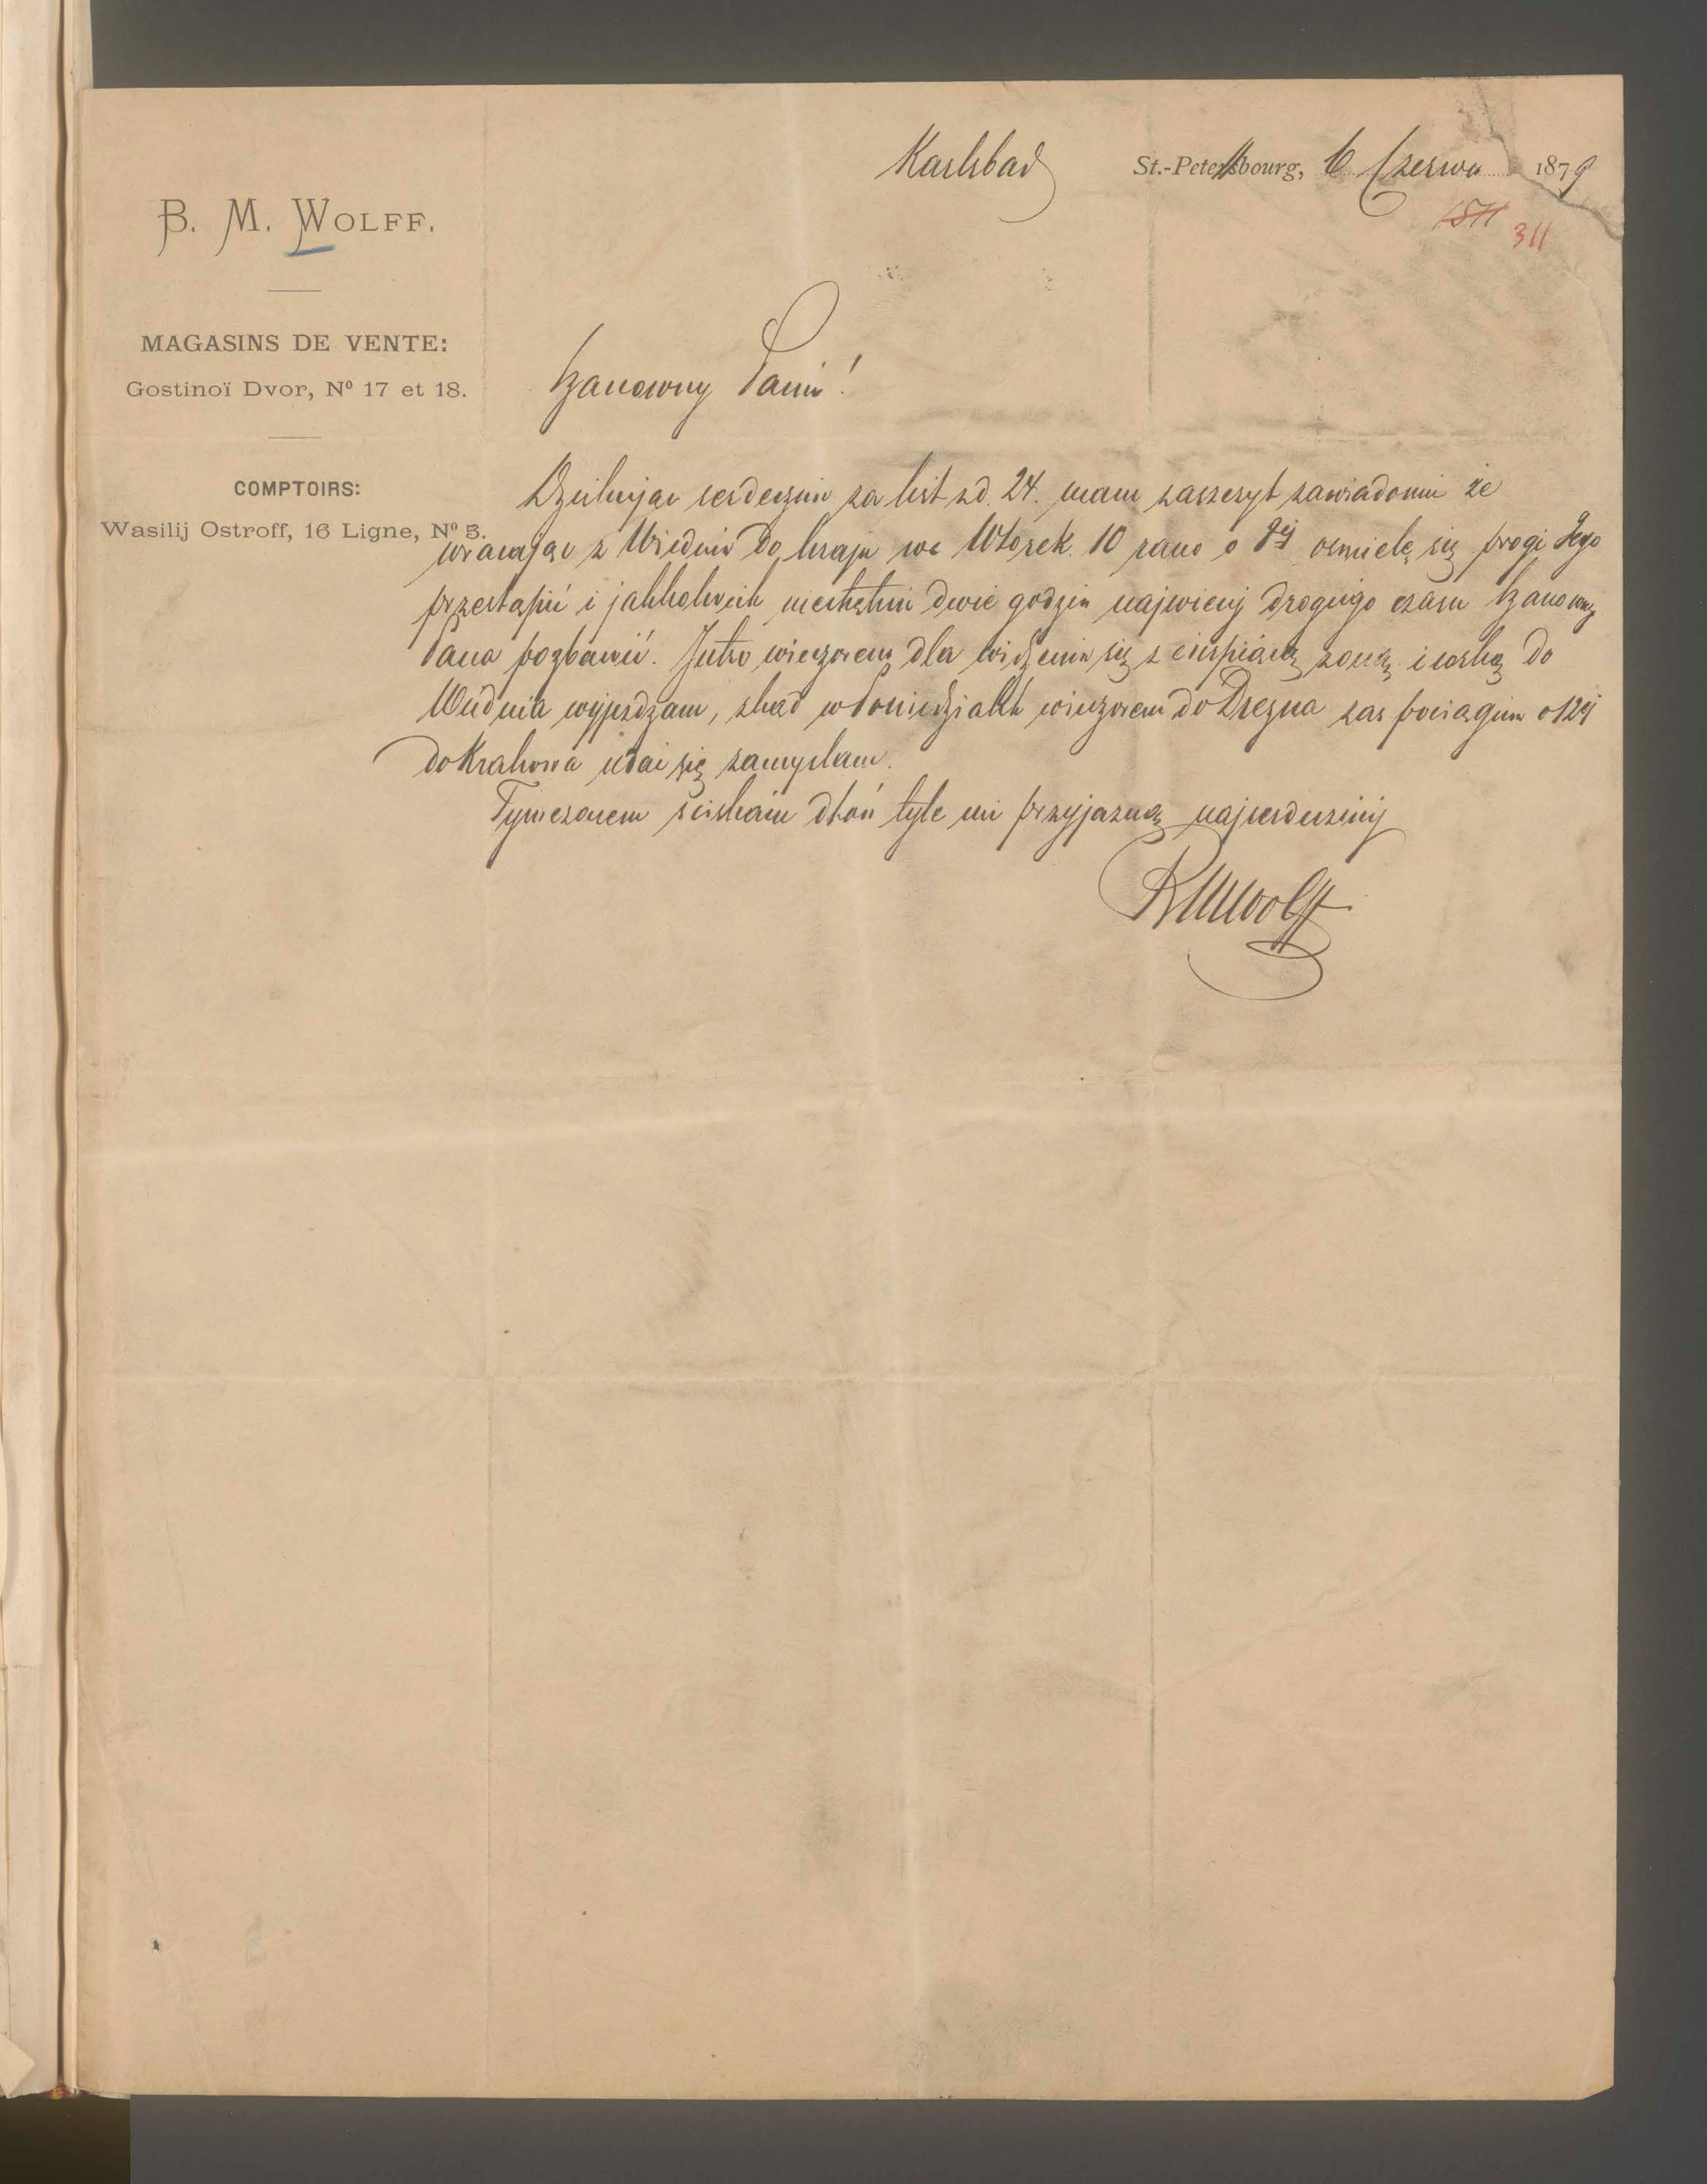 Karlsbad St.-Petersbourg, 6 Czerwca 1879
1511 311
B. M. WOLFF.
MAGASINS DE VENTE:
Gostinoï Dvor, Nº 17 et 18.
COMPTOIRS:
Wasilij Ostroff, 16 Ligne, Nº 5.
Szanowny Panie!
Dziękując serdecznie za list z d. 24. mam zaszczyt zawiadomić że
wracając z Wiednia do kraju we Wtorek 10 rano o 8ej ośmielę się progi Jego
przestąpić i jakkolwiek niechętnie dwie godzin najwięcej drogiego czasu Szanownego
Pana pozbawić. Jutro wieczorem dla widzenia się z cierpiącą żoną i córką do
Wiednia wyjeżdżam, skąd w Poniedziałek wieczorem do Drezna zaś pociągiem o 12ej
do Krakowa udać się zamyślam.
Tymczasem ściskam dłoń tyle mi przyjazną najserdeczniej
BMWolff